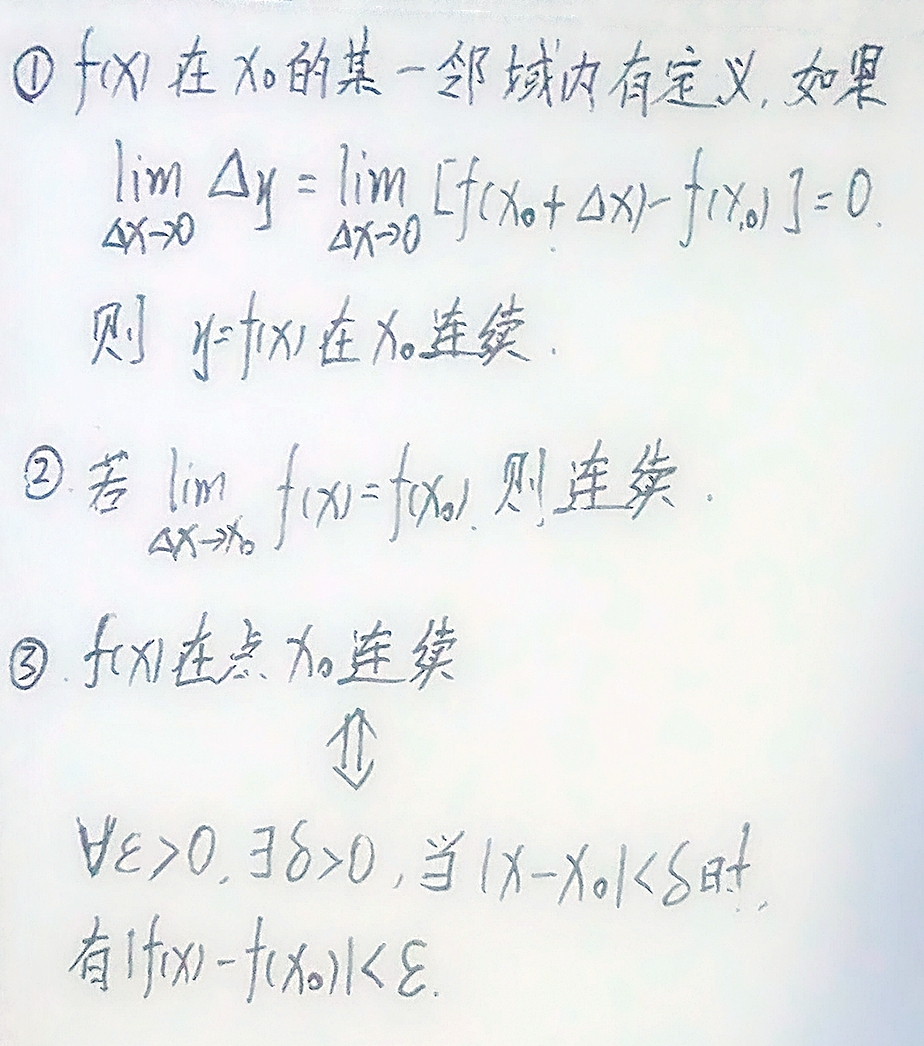 ① f(x) 在 x₀ 的某一邻域内有定义, 如果
lim Δx→0 Δy = lim Δx→0 [f(x₀+Δx)-f(x₀)]=0.
则 y=f(x) 在 x₀ 连续.
②. 若 lim Δx→x₀ f(x)=f(x₀), 则连续.
③. f(x) 在点 x₀ 连续
⇕
∀ε>0, ∃δ>0, 当 |x-x₀|<δ 时,
有 |f(x)-f(x₀)|<ε.